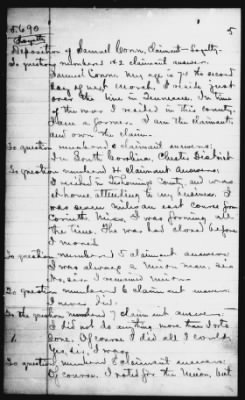 5690
5
Loyalty
Deposition of Samuel Cowan Claimant - Loyalty.
To question numbered 1 & 2 claimant answers.
Samuel Cowan My age is 74 the second
day of next March, I reside just
over the line in Tennessee. In time
of the war I resided in this county.
I am a farmer. I am the claimant
and own the claim.
To question numbered 3 claimant answers:
In South Carolina, Chester District
To question numbered 4 Claimant Answers
I resided in Tishomingo County, and was
at home attending to my business. I
was seven miles an east course from
Corinth Miss, I was farming all
the time. The war had closed before
I moved
To question numbered 5 claimant answers
I was always a Union man,
I remained Union
To question numbered 6 claimant answers
I never did.
To the question numbered 7 claimant answers
I did not do anything more than I
done. Of course I did all I could.
Yes, sir, I was,
To question numbered 8 claimant answers
Of course. I voted for the Union, but